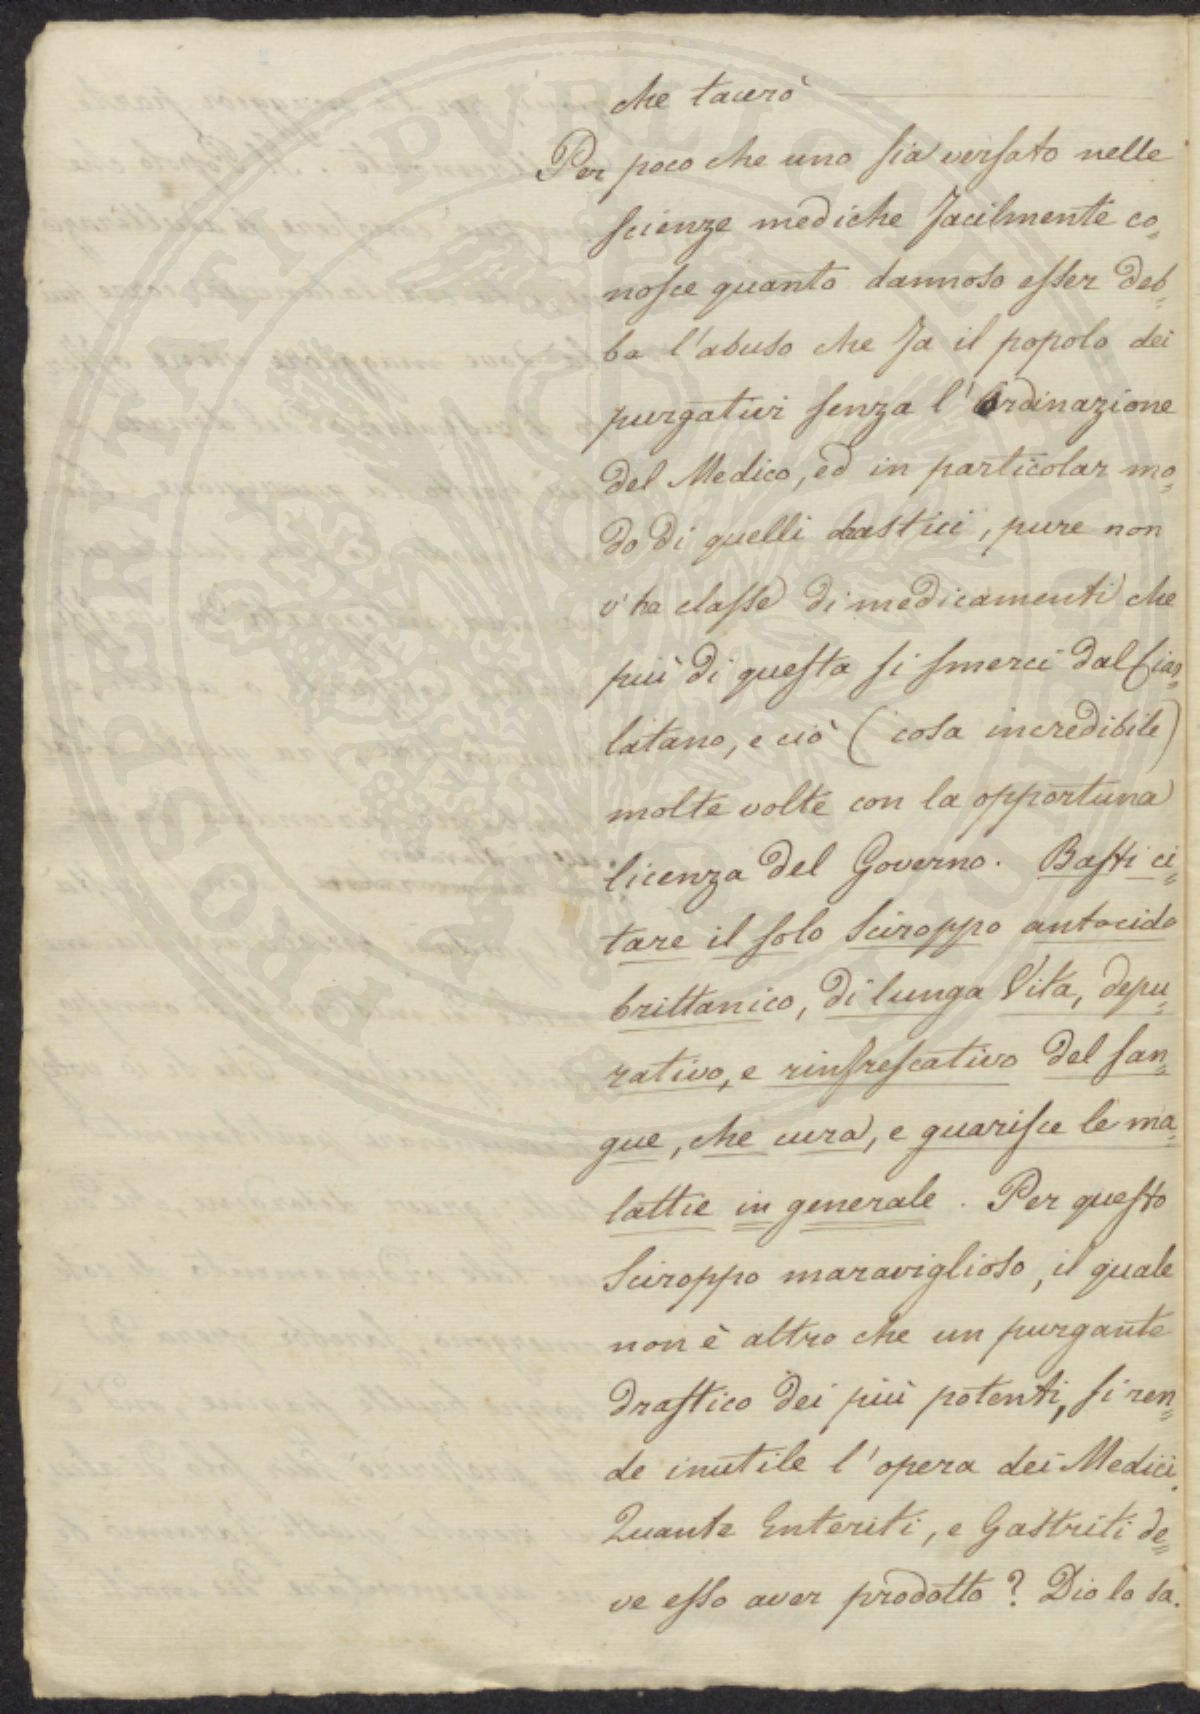 che tacerò
Per poco che uno sia versato nelle
scienze mediche facilmente co=
nosce quanto dannoso esser deb=
ba l'abuso che fa il popolo dei
purgativi senza l'ordinazione
del Medico, ed in particolar mo=
do di quelli drastici, pure non
v'ha classe di medicamenti che
più di questa si smerci dal Ciar=
latano, e ciò (cosa incredibile)
molte volte con la opportuna
licenza del Governo. Basti ci=
tare il solo Sciroppo antocido
brittanico, di lunga Vita, depu=
rativo, e rinfrescativo del san=
gue, che cura, e guarisce le ma=
lattie in generale. Per questo
Sciroppo maraviglioso, il quale
non è altro che un purgante
drastico dei più potenti, si ren=
de inutile l'opera dei Medici.
Quante Enteriti, e Gastriti de=
ve esso aver prodotto? Dio lo sa.